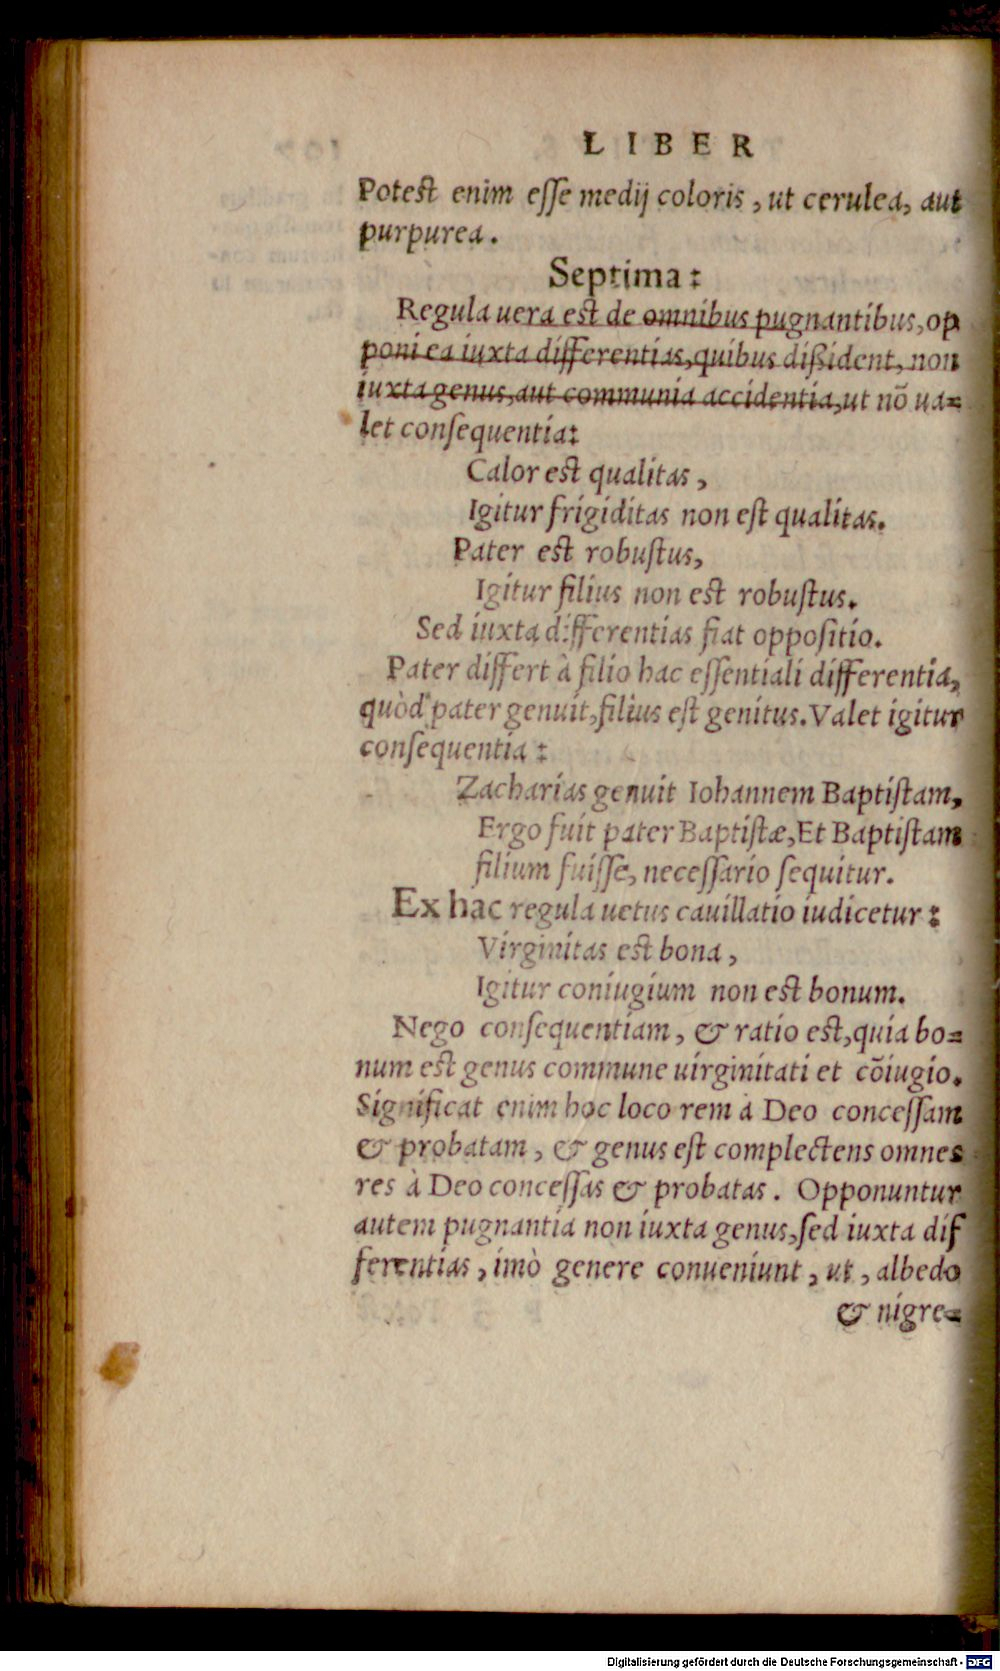 LIBER
Potest enim esse medij coloris, ut cerulea, aut
purpurea.
Septima:
Regula uera est de omnibus pugnantibus, op
poni ea iuxta differentias, quibus dißident, non
iuxta genus, aut communia accidentia, ut nõ ua=
let consequentia:
Calor est qualitas,
Igitur frigiditas non est qualitas.
Pater est robustus,
Igitur filius non est robustus.
Sed iuxta differentias fiat oppositio.
Pater differt à filio hac essentiali differentia,
quòd pater genuit, filius est genitus. Valet igitur
consequentia:
Zacharias genuit Iohannem Baptistam,
Ergo fuit pater Baptistæ, Et Baptistam
filium fuisse, necessario sequitur.
Ex hac regula uetus cauillatio iudicetur:
Virginitas est bona,
Igitur coniugium non est bonum.
Nego consequentiam, & ratio est, quia bo=
num est genus commune uirginitati et cõiugio.
Significat enim hoc loco rem à Deo concessam
& probatam, & genus est complectens omnes
res à Deo concessas & probatas. Opponuntur
autem pugnantia non iuxta genus, sed iuxta dif
ferentias, imò genere conueniunt, ut, albedo
& nigre=
Digitalisierung gefördert durch die Deutsche Forschungsgemeinschaft - DFG